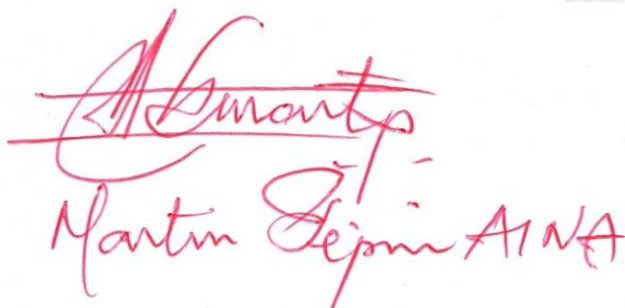 Martin Pépin AINA